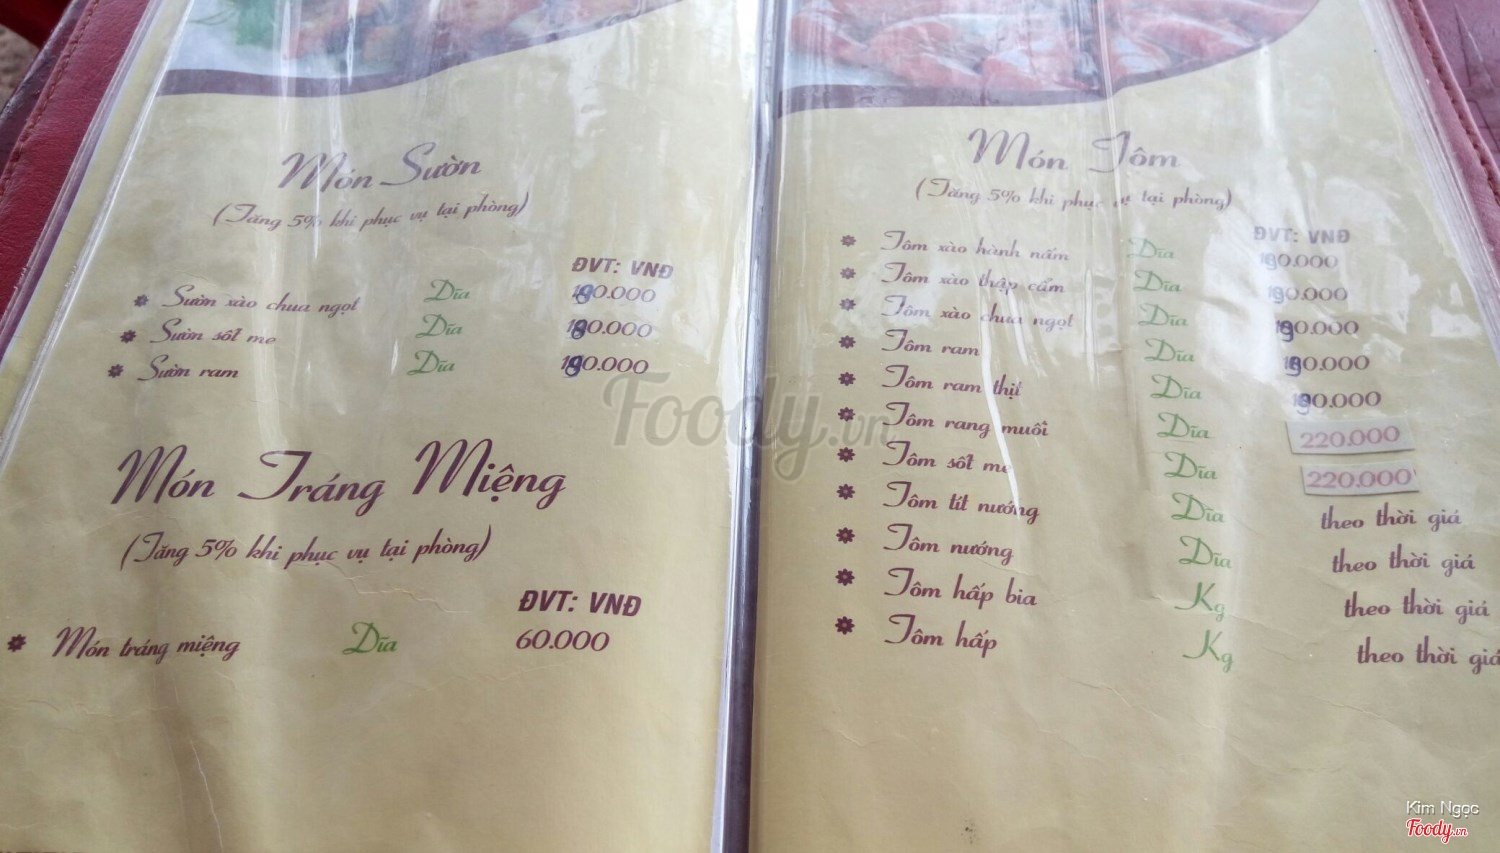 Món Sườn
(Tăng 5% khi phục vụ tại phòng)
ĐVT: VNĐ
Sườn xào chua ngọt Dĩa
Sườn sốt me Dĩa
Sườn ram Dĩa
Món Tráng Miệng
(Tăng 5% khi phục vụ tại phòng)
ĐVT: VNĐ
Món tráng miệng Dĩa 60.000
Món Tôm
(Tăng 5% khi phục vụ tại phòng)
ĐVT: VNĐ
Tôm xào hành nấm Dĩa
Tôm xào thập cẩm Dĩa
Tôm xào chua ngọt Dĩa
Tôm ram Dĩa
Tôm ram thịt Dĩa
Tôm rang muối Dĩa 220.000
Tôm sốt me Dĩa 220.000
Tôm tít nướng Dĩa theo thời giá
Tôm nướng Dĩa theo thời giá
Tôm hấp bia Kg theo thời giá
Tôm hấp Kg theo thời giá
Foody.vn
Kim Ngọc
Foody.vn